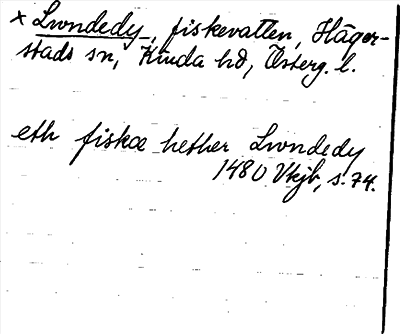 × Lwndedy, fiskevatten, Häger-
stads sn, Kinda hd, Österg. l.
eth fiskæ hether Lwndedy
1480 Vkjb, s. 74.